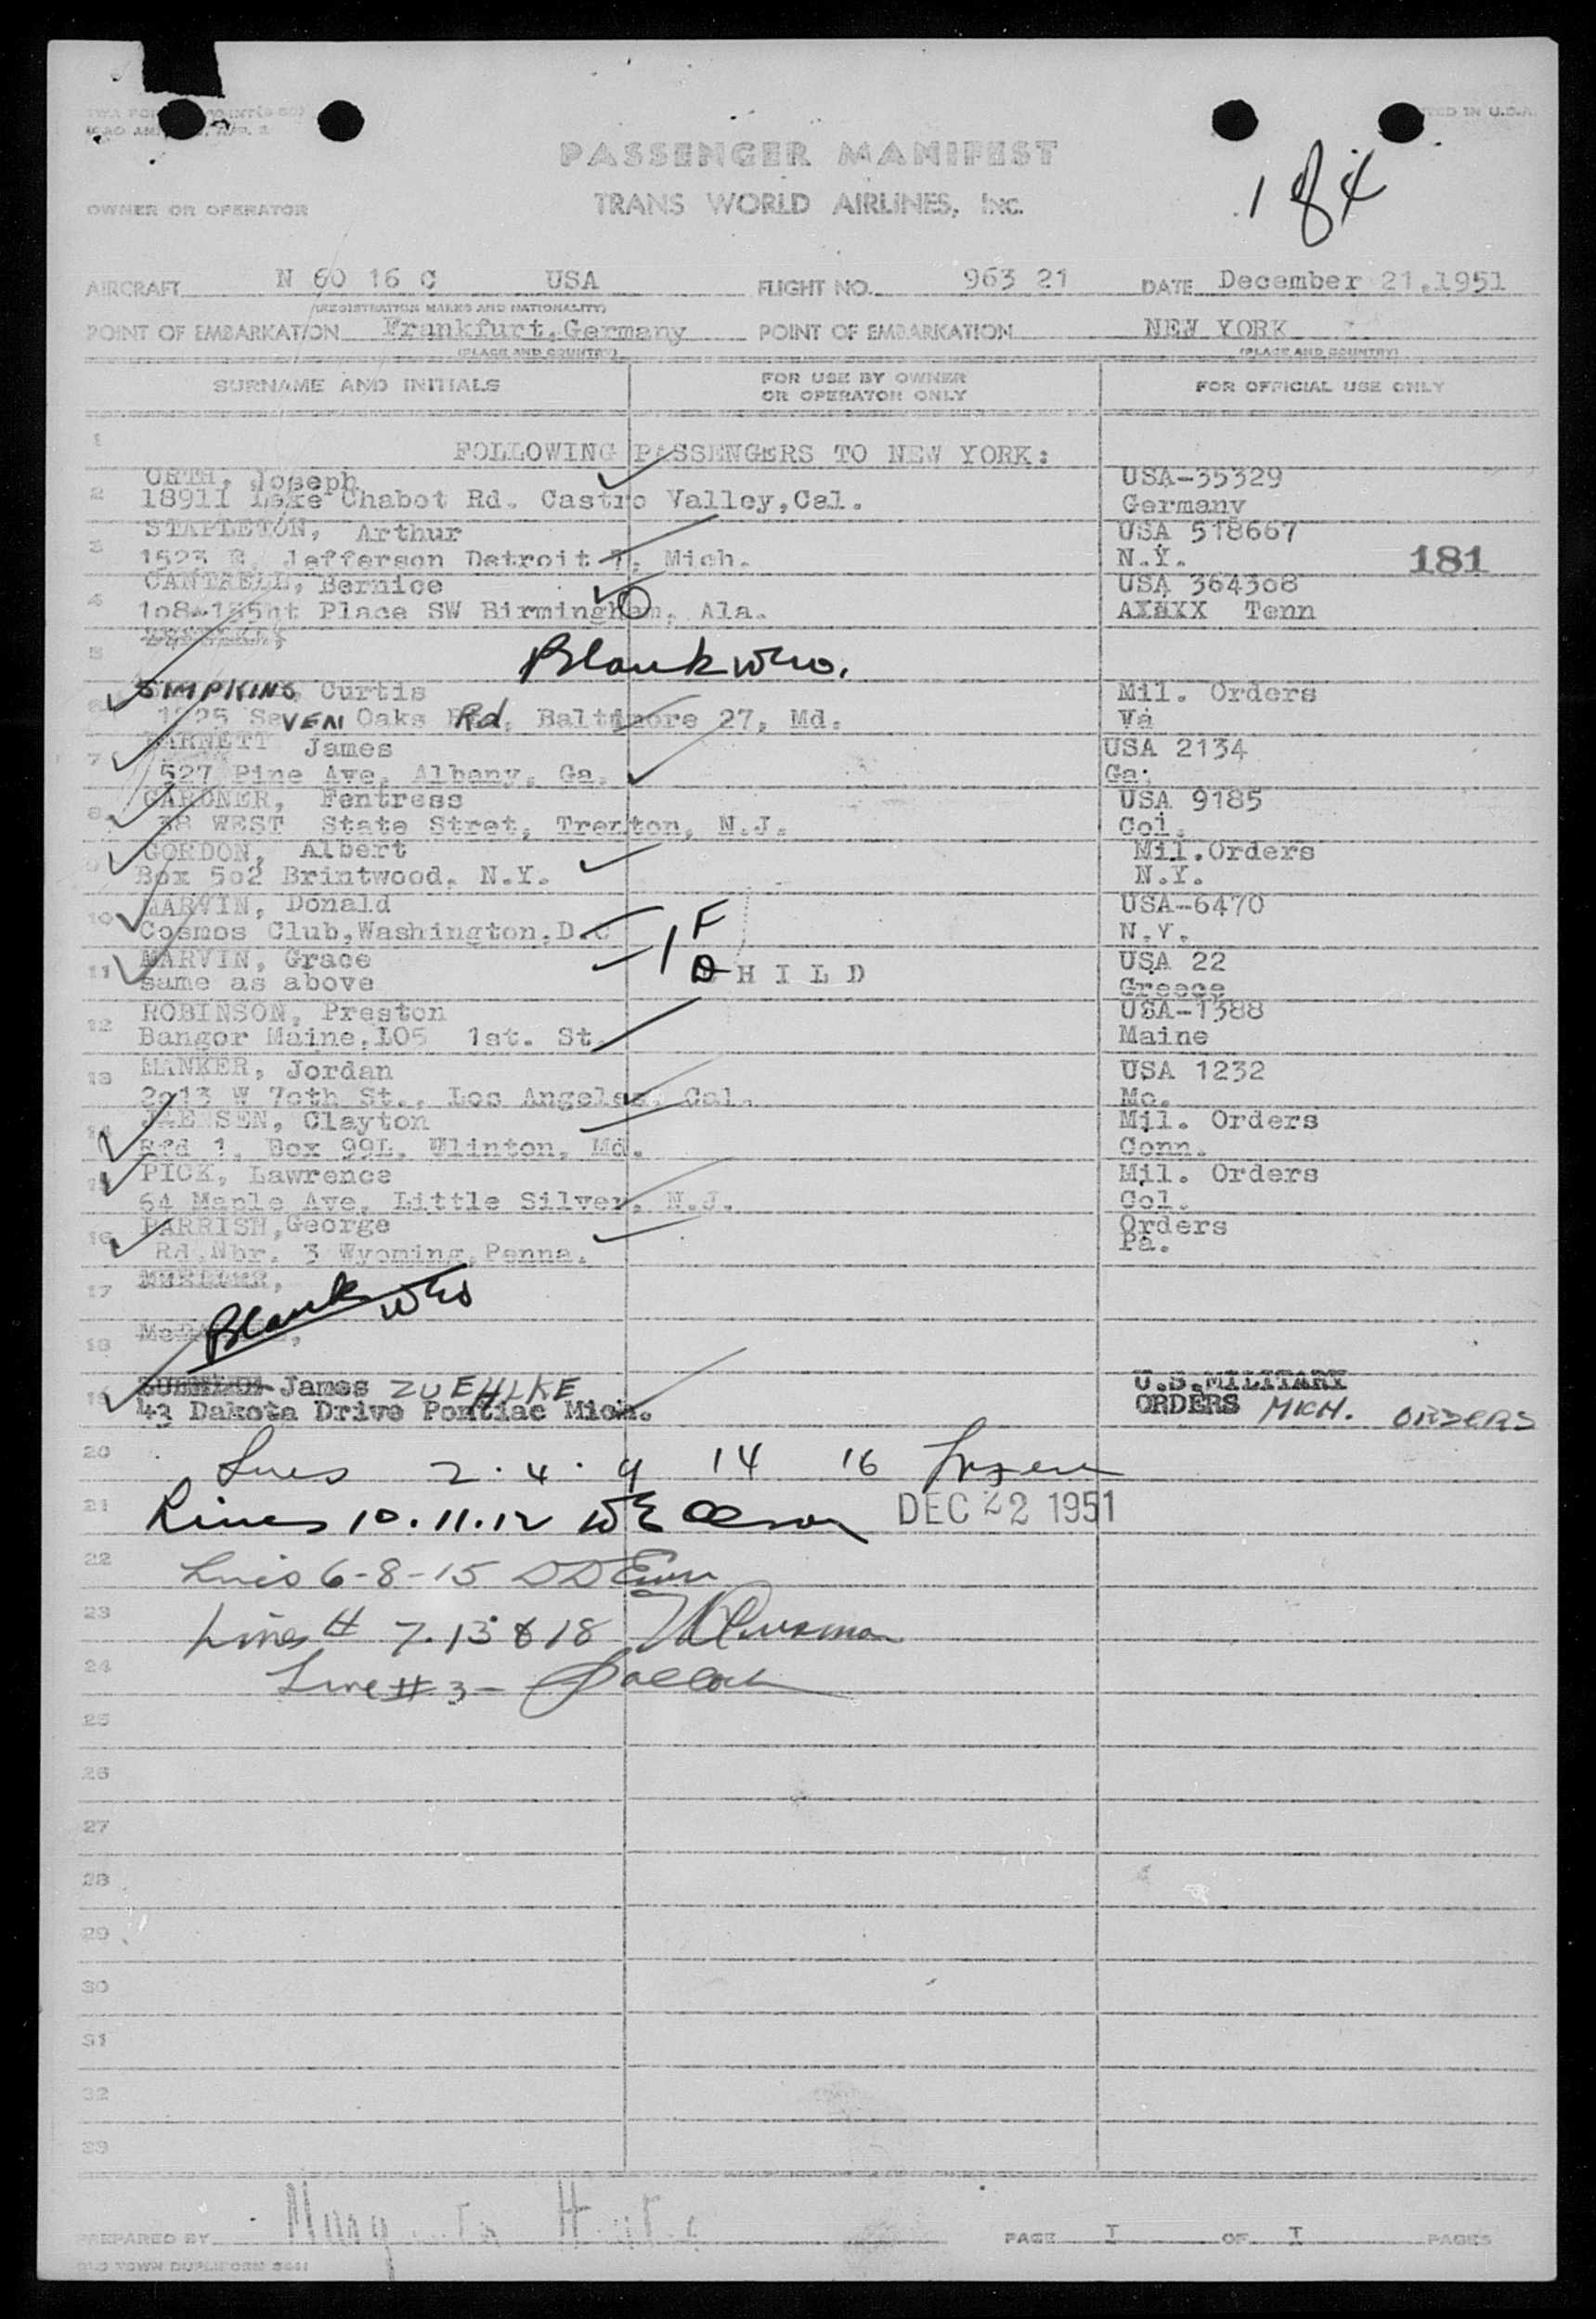 PRINTED IN U.S.A.
PASSENGER MANIFEST
1 of 4
OWNER OR OPERATOR
TRANS WORLD AIRLINES, Inc.
AIRCRAFT N 60 16 C USA FLIGHT NO. 963 21 DATE December 21,1951
(REGISTRATION MARKS AND NATIONALITY)
POINT OF EMBARKATION Frankfurt,Germany POINT OF EMBARKATION NEW YORK
(PLACE AND COUNTRY) (PLACE AND COUNTRY)
SURNAME AND INITIALS FOR USE BY OWNER OR OPERATOR ONLY FOR OFFICIAL USE ONLY
1
FOLLOWING PASSENGERS TO NEW YORK:
2 ORTH, Joseph USA-35329
18911 Lake Chabot Rd. Castro Valley,Cal. Germany
3 STAPLETON, Arthur USA 518667
1523 E. Jefferson Detroit 7, Mich. N.Y. 181
4 CANTRELL, Bernice USA 364308
108-155ht Place SW Birmingham, Ala. AXAXX Tenn
5 Blank
6 SIMPKINS, Curtis Mil. Orders
1225 SeVEN Oaks Rd, Baltimore 27, Md. Va
7 BARNETT James USA 2134
527 Pine Ave, Albany, Ga. Ga.
8 GARDNER, Fentress USA 9185
38 WEST State Stret, Trenton, N.J. Col.
9 GORDON, Albert Mil.Orders
Box 502 Brintwood, N.Y. N.Y.
10 MARVIN, Donald USA-6470
Cosmos Club,Washington,D.C N.Y.
11 MARVIN, Grace 1 F CHILD USA 22
same as above Greece
12 ROBINSON, Preston USA-1388
Bangor Maine,105 1st. St. Maine
13 MANKER, Jordan USA 1232
2013 W 70th St., Los Angeles, Cal. Mo.
14 JAENSEN, Clayton Mil. Orders
Rfd 1, Box 99L, Wlinton, Md. Conn.
15 PICK, Lawrence Mil. Orders
64 Maple Ave, Little Silver, N.J. Col.
16 PARRISH,George Orders
Rd.Nbr. 3 Wyoming,Penna. Pa.
17
Blank
18
19 James ZUEHLKE U.S.MILITARY
43 Dakota Drive Pontiac Mich. ORDERS MICH. ORDERS
20 Lines 2 . 4 . 9 14 16
21 Lines 10.11.12 DEC 22 1951
22 Lines 6-8-15
23 Lines # 7.13 & 18
24 Line # 3 -
25
26
27
28
29
30
31
32
33
PREPARED BY PAGE I OF I PAGES
OLD TOWN DUPLIFORM